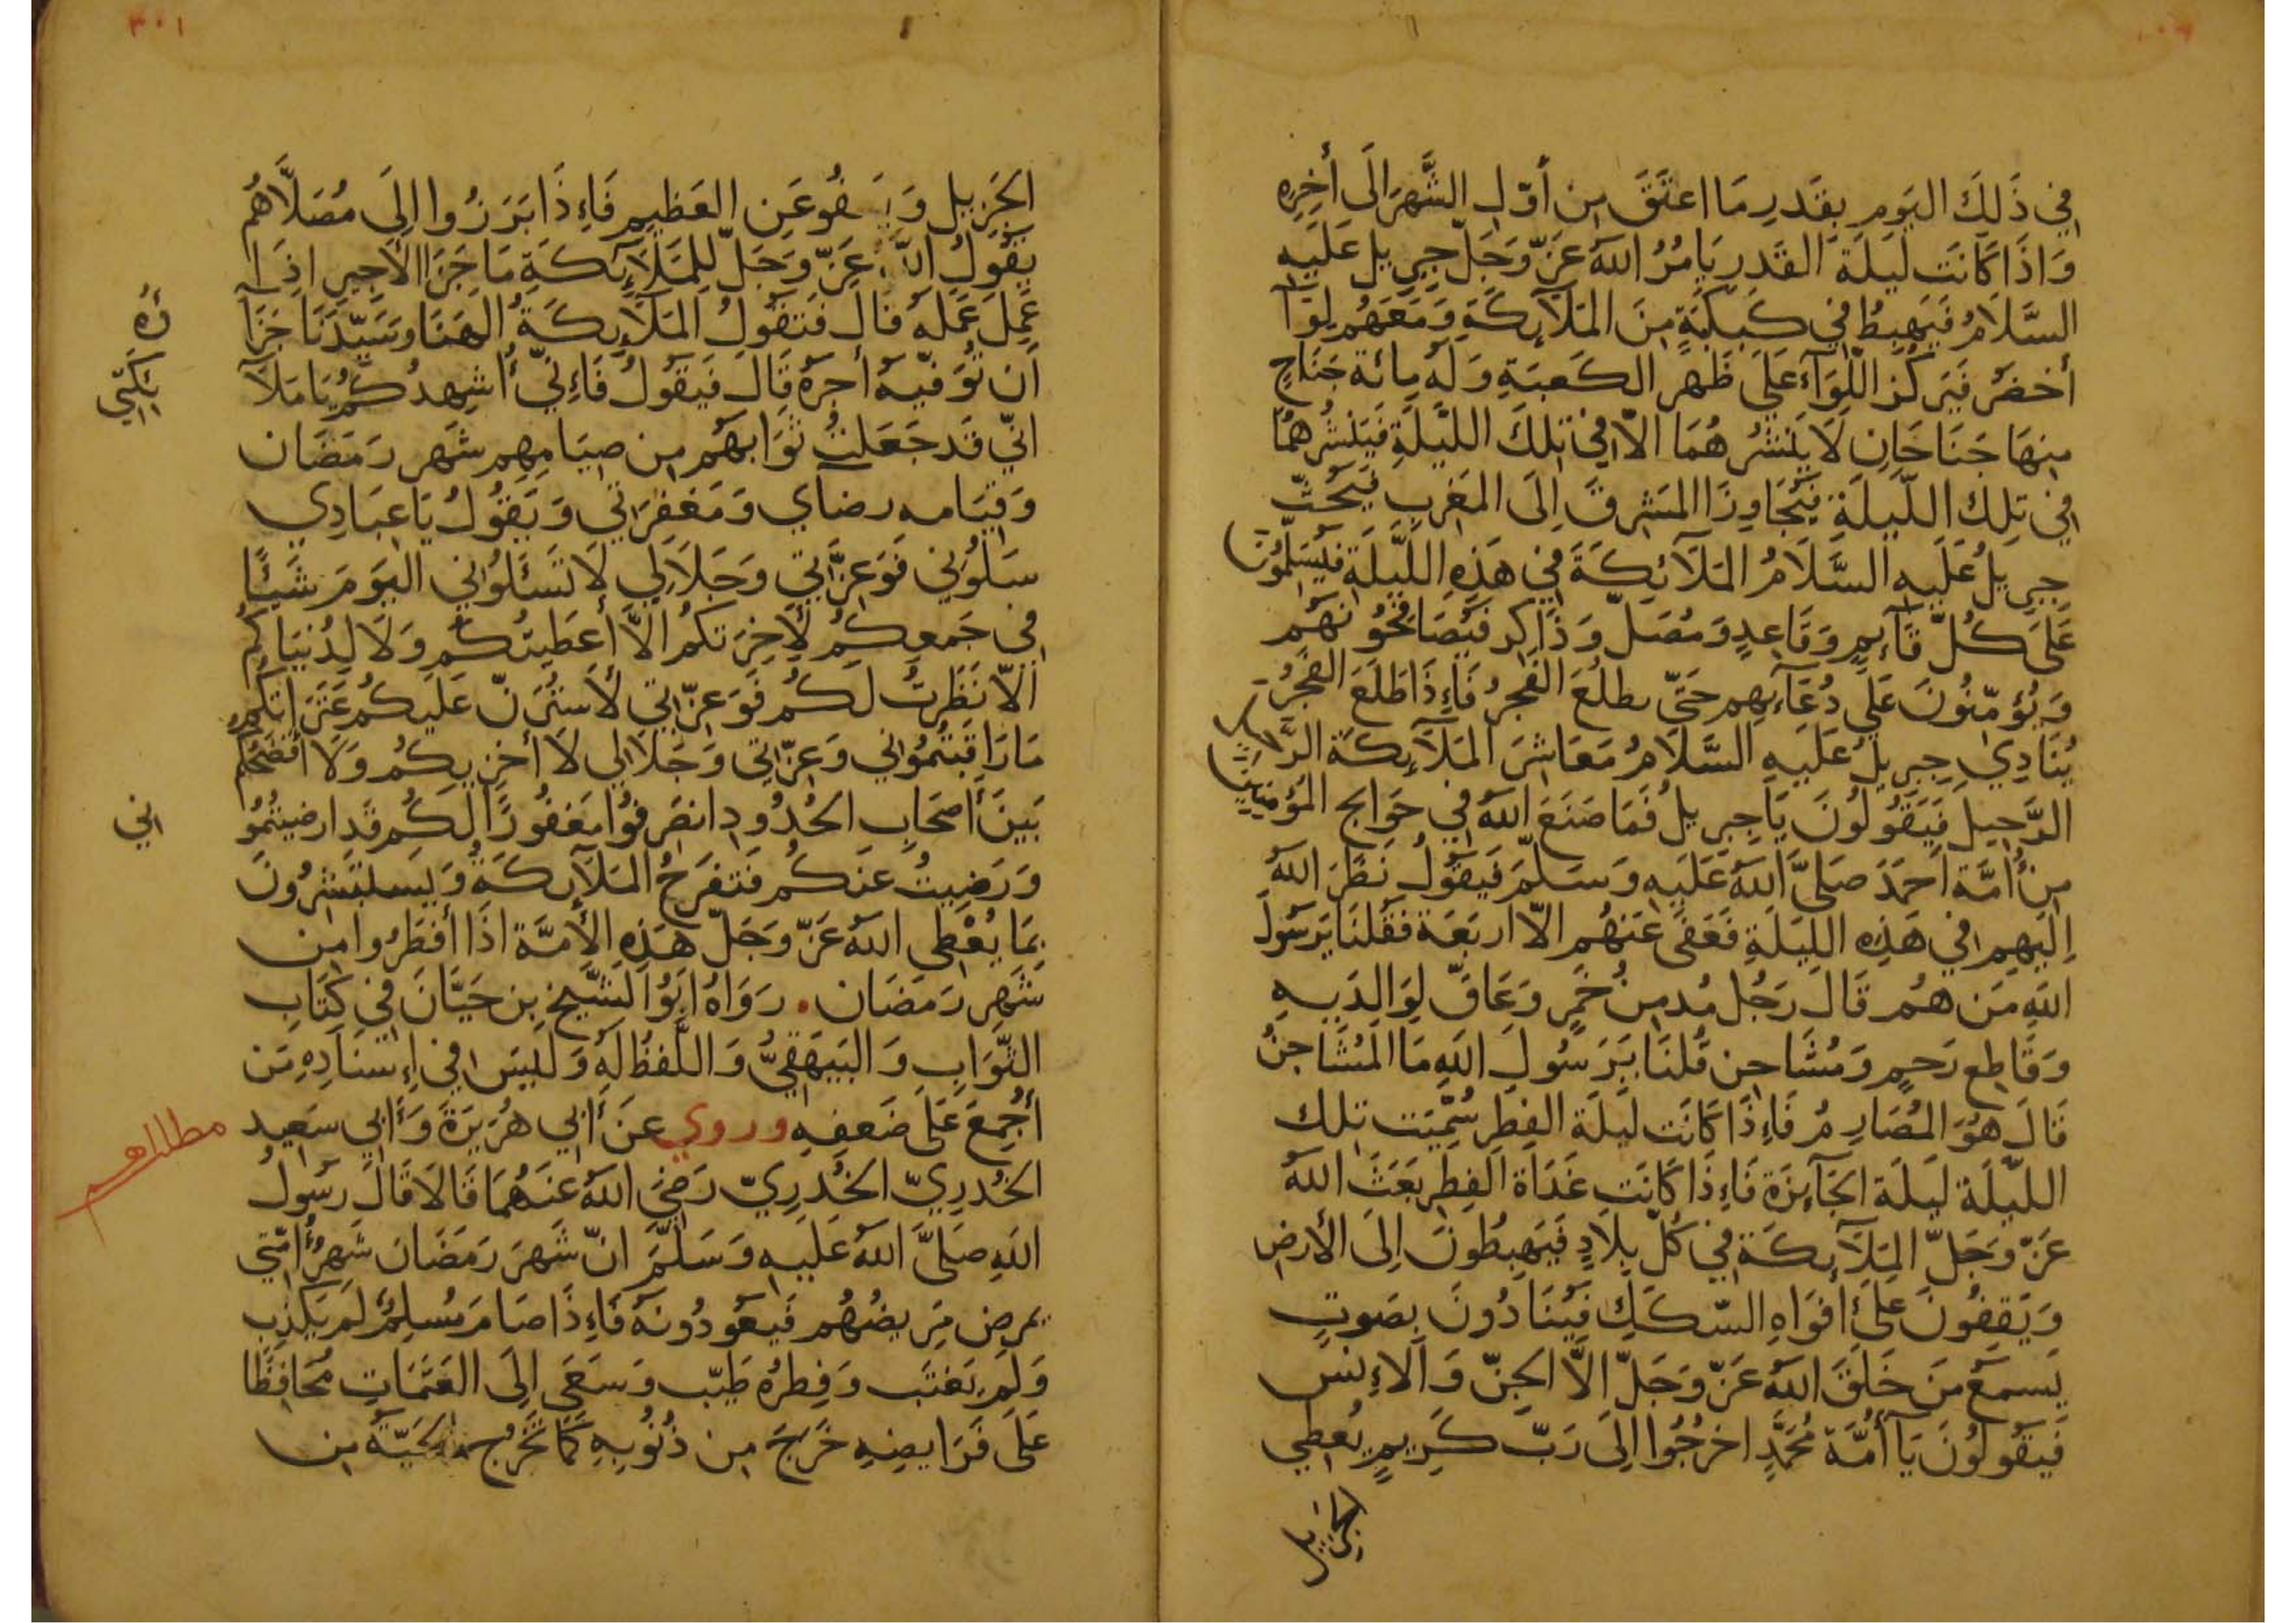 في ذَلِكَ اليَومِ بِقَدرِ مَا اعتَقَ مِن أوّلِ الشَّهرِ الَى أخِرِهِ
وَاذَا كَانَت لَيلَةَ القَدرِ يَامُرُ اللهُ عَزّ وَجَلّ جِبرِيل عَلَيهِ
السَّلَامُ فَيَهبِطُ في كَبكَبَةٍ مِنَ المَلَآئِكَةِ وَمَعَهُم لِوَآ
أخضَرُ فَيَركُزَ اللّوَآءَ عَلَى ظَهرِ الكَعبَةِ وَلَهُ مِائَة جَنَاحٍ
مِنهَا جَنَاحَانِ لَا يَنشُرهُمَا الاّ في تِلكَ اللَّيلَةِ فَيَنشُرهُمَا
في تِلكَ اللَّيلَةِ فَيُجَاوِزَا المَشرِقَ اِلَى المَغرِبِ فَيَحُثّ
جِبرِيلُ عَلَيهِ السَّلَامُ المَلَآئِكَةَ في هَذِهِ اللَّيلَةِ فَيُسَلِّمُونَ
عَلَى كُلّ قَآئِمٍ وَقَاعِدٍ وَمُصَلّ وَذَاكِر فَيُصَافِحُونَهُم
وَيُؤمّنُونَ عَلَى دُعَآءِهِم حَتّى يطلُعَ الفَجرُ فَاِذَا طَلَعَ الفَجرُ
يُنَادِي جِبرِيلُ عَلَيهِ السَّلَامُ مَعَاشِرَ المَلَآئِكَة الرَّحِيل
الرَّحِيل فَيَقُولُونَ يَا جِبرِيلُ فَمَا صَنَعَ اللهُ في حَوَايج المُؤمِنِينَ
مِن أُمّة أحمَدَ صَلَّى اللهُ عَلَيهِ وَسَلّمَ فَيَقُولُ نَظَرَ اللهُ
اِلَيهِم في هَذِه اللَّيلَةِ فَعَفَى عَنهُم الاّ اربَعَة فَقُلنَا يَرَسُولَ
اللهِ مَن هُم قَالَ رَجُل مُدمِن خَمرٍ وَعَاقّ لِوَالِدَيهِ
وَقَاطِع رَحِمٍ وَمُشَاحِن قُلنَا يَرَسُولَ اللهِ مَا المُشَاحِنُ
قَالَ هُوَ المُصَارِمُ فَاِذَا كَانَت لَيلَة الفِطرِ سُمّيَت تِلكَ
اللّيلَة لَيلَة الجَآئِزَة فَاِذَا كَانَت غَدَاة الفِطرِ بَعَثَ اللهُ
عَزّ وَجَلّ المَلَآئِكَة في كُلّ بِلَادٍ فَيَهبِطُونَ اِلَى الأرضِ
وَيَقِفُونَ عَلَى أفوَاهِ السّكَكِ فَيُنَادُونَ بِصَوتٍ
يَسمَعُ مَن خَلَقَ اللهُ عَزّ وَجَلّ الاّ الجِنّ وَالاِنس
فَيَقُولُونَ يَا أُمّةَ مُحَمَّدٍ اخرُجُوا اِلَى رَبّ كَرِيمٍ يُعطِي
الجزيل
٣٠١
الجَزِيل وَيَعفُو عَنِ العَظِيمِ فَاِذَا بَرَزُوا اِلَى مُصَلَّاهُم
يَقُولُ اللهُ عَزّ وَجَلّ لِلمَلَآئِكَةِ مَا جَزَا الأجِيرِ اذَا
عَمِلَ عَمَلَهُ قَالَ فَتَقُولُ المَلَآئِكَةُ الهَنَا وَسَيّدَنَا جَزَآ
ؤه
أن تُوَفّيهُ أجرَهُ قَالَ فَيَقُولُ فَاِنّي أُشهِدُكُم يَا مَلَآ
ئِكَتِي
انّي قَد جَعَلتُ ثَوَابهُم مِن صِيَامِهِم شَهرِ رَمَضَان
وَقِيَامه رضاي وَمَغفِرَتي وَيَقُولُ يَا عِبَادِي
سَلُونِي فَوَعِزَّتي وَجَلَالِي لَا تَسئَلُوني اليَومَ شَيئًا
في جَمعِكُم لِأخِرَتكُم الاّ أعطَيتُكُم وَلَا لِدُنيَاكُم
الاّ نَظَرتُ لَكُم فَوَعِزّتي لَأستُرَنّ عَلَيكُم عَثَرَاتكُم
مَا رَاقَبتُمُوني وَعِزّتي وَجَلَالي لَا أخزِيكُم وَلَا أفضَحُكُم
بَينَ أصحَابِ الحُدُودِ انصَرِفُوا مَغفُورًا لَكُم قَد ارضيتُمُو
اني
وَرَضِيتُ عَنكُم فَتَفرَحُ المَلَآئِكَةُ وَيَستَبشِرُونَ
بِمَا يُعْطِي اللهُ عَزّ وَجَلّ هَذِهِ الأمّةَ اذَا أفطَرُوا مِن
شَهرِ رَمَضَان. رَوَاهُ ابُوا الشَّيخِ بن حَيَّانَ في كِتَابِ
الثَّوَابِ وَالبَيهَقِيُّ وَاللَّفظُ لَهُ وَلَيسَ في اِسنَادِهِ مَن
أُجمِعَ عَلَى ضَعفِهِ وروي عَن أبي هُرَيرَة وَأبي سَعِيد
مطلب
الخُدرِيّ الخُدرِيّ رَضِيَ اللهُ عَنهُمَا قَالَا قَالَ رَسُولُ
اللهِ صَلَّى اللهُ عَلَيهِ وَسَلَّمَ انّ شَهرَ رَمَضَان شَهرُ أُمّتي
يمرض مَرِيضُهُم فَيَعُودُونَهُ فَاِذَا صَامَ مُسلِمٌ لَم يَكذِب
وَلَم يَغتَب وَفِطرُهُ طَيّب وَسَعَى اِلَى العَتَمَاتِ مُحَافِظًا
عَلَى فَرَايضِهِ خَرَجَ مِن ذُنُوبِهِ كَمَا تَخرُج الحَيّةُ مِن